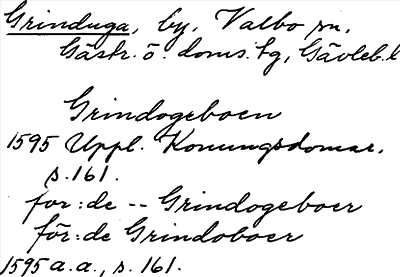 Grinduga, by, Valbo sn,
Gästr. ö. doms. tg, Gävleb. l
Grindogeboen
1595 Uppl. Konungsdomar,
s. 161.
for: de -- Grindogeboer
för: de Grindoboer
1595 a.a., s. 161.